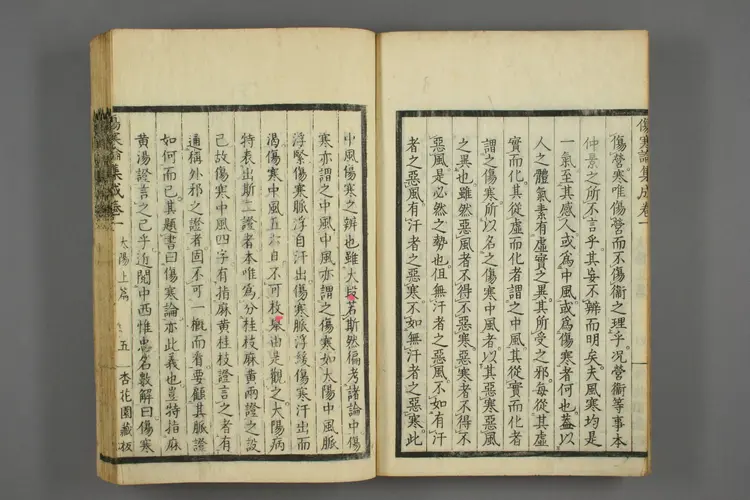 傷寒論集成卷一
傷營寒唯傷營而不傷衞之理乎况營衞等事本
仲景之所不言乎其妄不辨而明矣夫風寒均是
一氣至其感人或爲中風或爲傷寒者何也蓋以
人之體氣素有虛實之異其所受之邪每從其虛
實而化其從虛而化者謂之中風其從實而化者
謂之傷寒所以名之傷寒中風者以其惡寒惡風
之異也雖然惡風者不得不惡寒惡寒者不得不
惡風是必然之勢也但無汗者之惡風不如有汗
者之惡風有汗者之惡寒不如無汗者之惡寒此
中風傷寒之辨也雖大段若斯然徧考諸論中傷
寒亦謂之中風中風亦謂之傷寒如太陽中風脈
浮緊傷寒脈浮自汗出傷寒脈浮緩傷寒汗出而
渴傷寒中風五六日不可枚舉由是觀之太陽病
特表出斯二證者本唯爲分桂枝麻黃兩證之設
已故傷寒中風四字有指麻黃桂枝證言之者有
通稱外邪之證者固不可一概而看要顧其脈證
如何而已其題書曰傷寒論亦此義也豈特指麻
黃湯證言之已乎近閲中西惟忠名數解曰傷寒
傷寒論集成卷一
太陽上篇
五
杏花園藏板